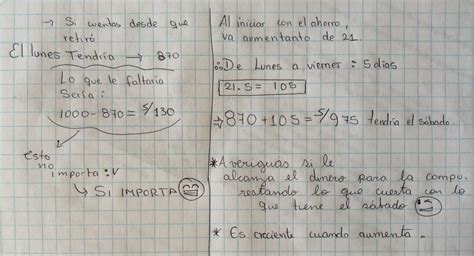 → Si cuentas desde que
retiró
El lunes Tendría → 870
Lo que le faltaría
Sería:
1000-870= S/130
Esto
no
importa :v
↳ SI IMPORTA
Al iniciar con el ahorro,
va aumentanto de 21.
∴ De Lunes a viernes : 5 días
21.5= 105
⇒ 870+105 = S/975 tendría el sábado
* Averiguas si le
alcanza el dinero para la compu.
restando lo que cuesta con lo
que tiene el sábado
* Es creciente cuando aumenta.